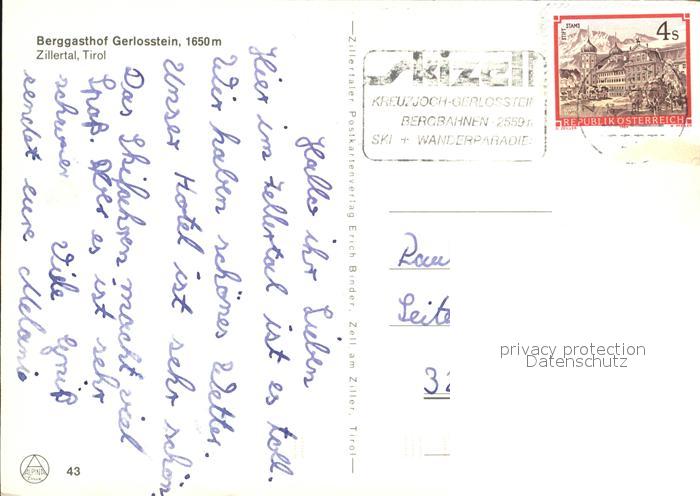 Berggasthof Gerlosstein, 1650 m
Zillertal, Tirol
Hallo ihr Lieben
Hier im Zellertal ist es toll.
Wir haben schönes Wetter.
Unser Hotel ist sehr schön
Das Skifahren macht viel
Spaß. Aber es ist sehr
schwer Viele Grüß
sendet eure Melanie
43
ALPINA
—Zillertaler Postkartenverlag Erich Binder, Zell am Ziller, Tirol—
KREUZJOCH-GERLOSSTEIN
BERGBAHNEN - 2559 m
SKI + WANDERPARADIE
STIFT STAMS
4 S
REPUBLIK ÖSTERREICH
Seite
32
privacy protection
Datenschutz